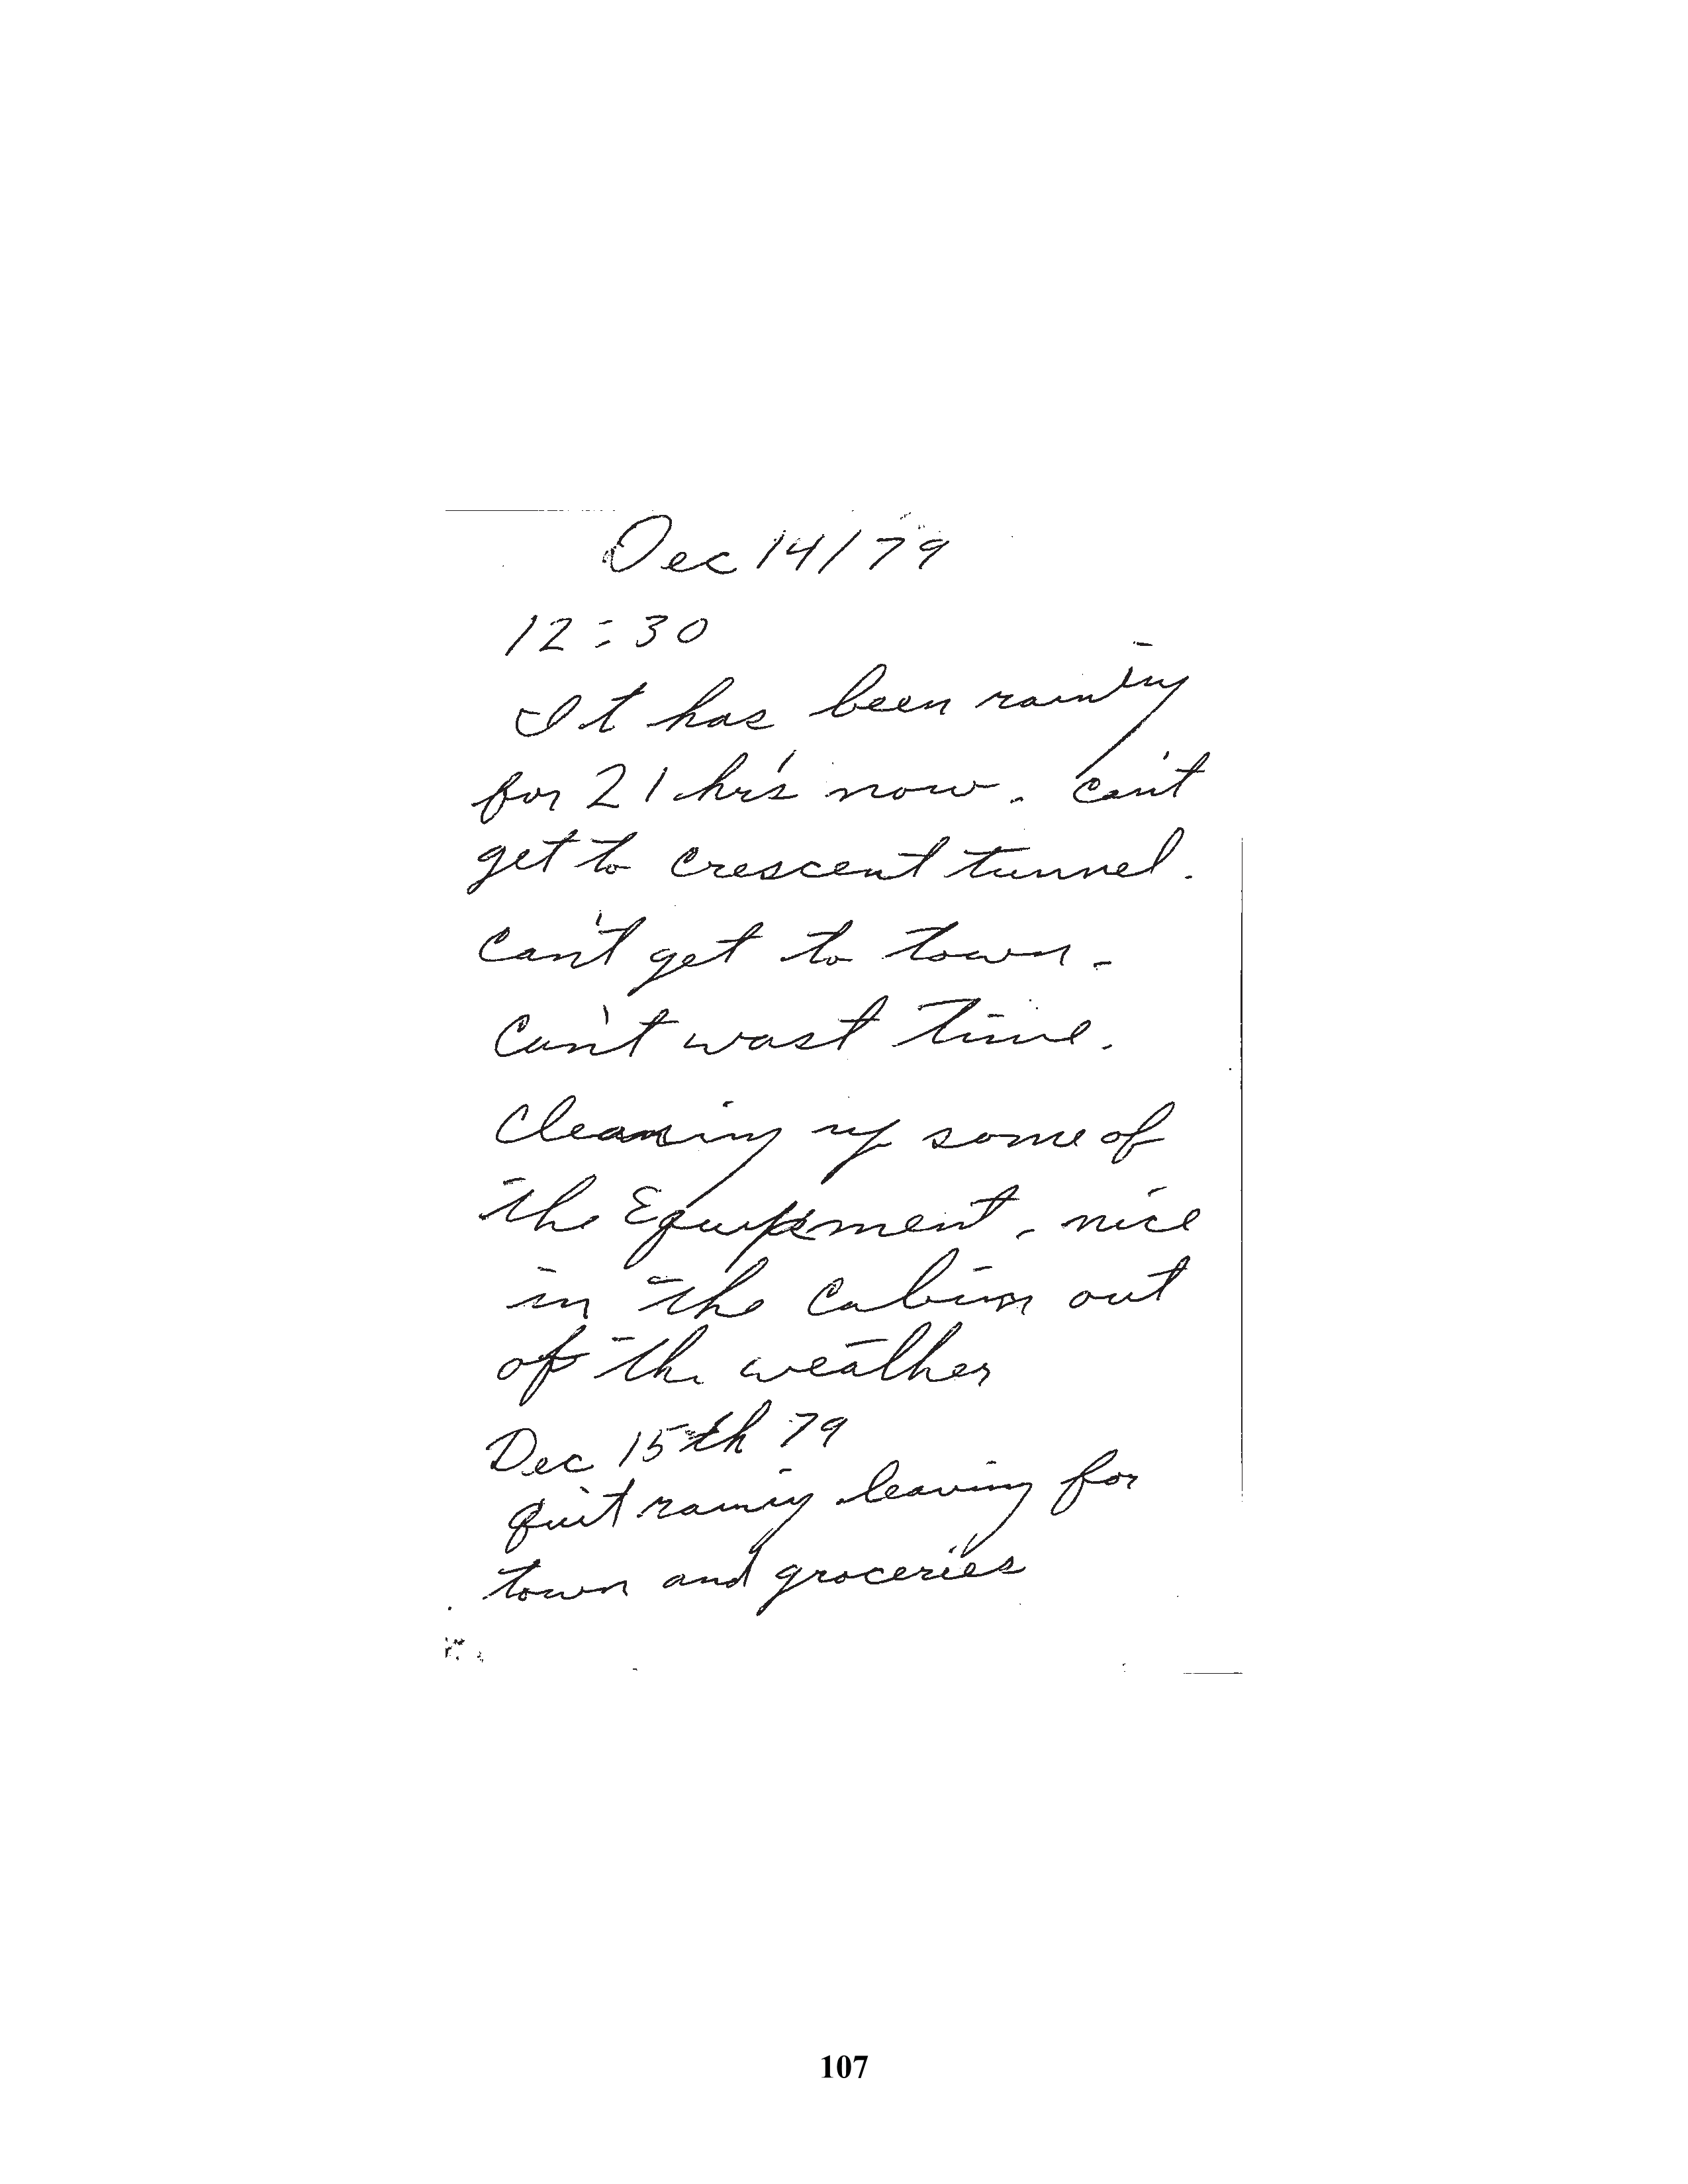 Dec 14/79
12:30
It has been raining
for 21 hr's now. can't
get to crescent tunnel.
can't get to town.
Can't wast time.
Cleaning up some of
the Equipment, nice
in the cabin out
of the weather
Dec 15th 79
quit rainig leaving for
town and groceries
107